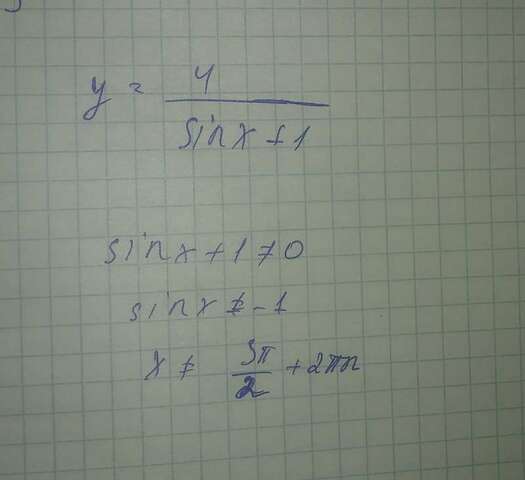 y = 4 / sinx + 1
sinx + 1 ≠ 0
sinx ≠ -1
x ≠ 3π/2 + 2πn